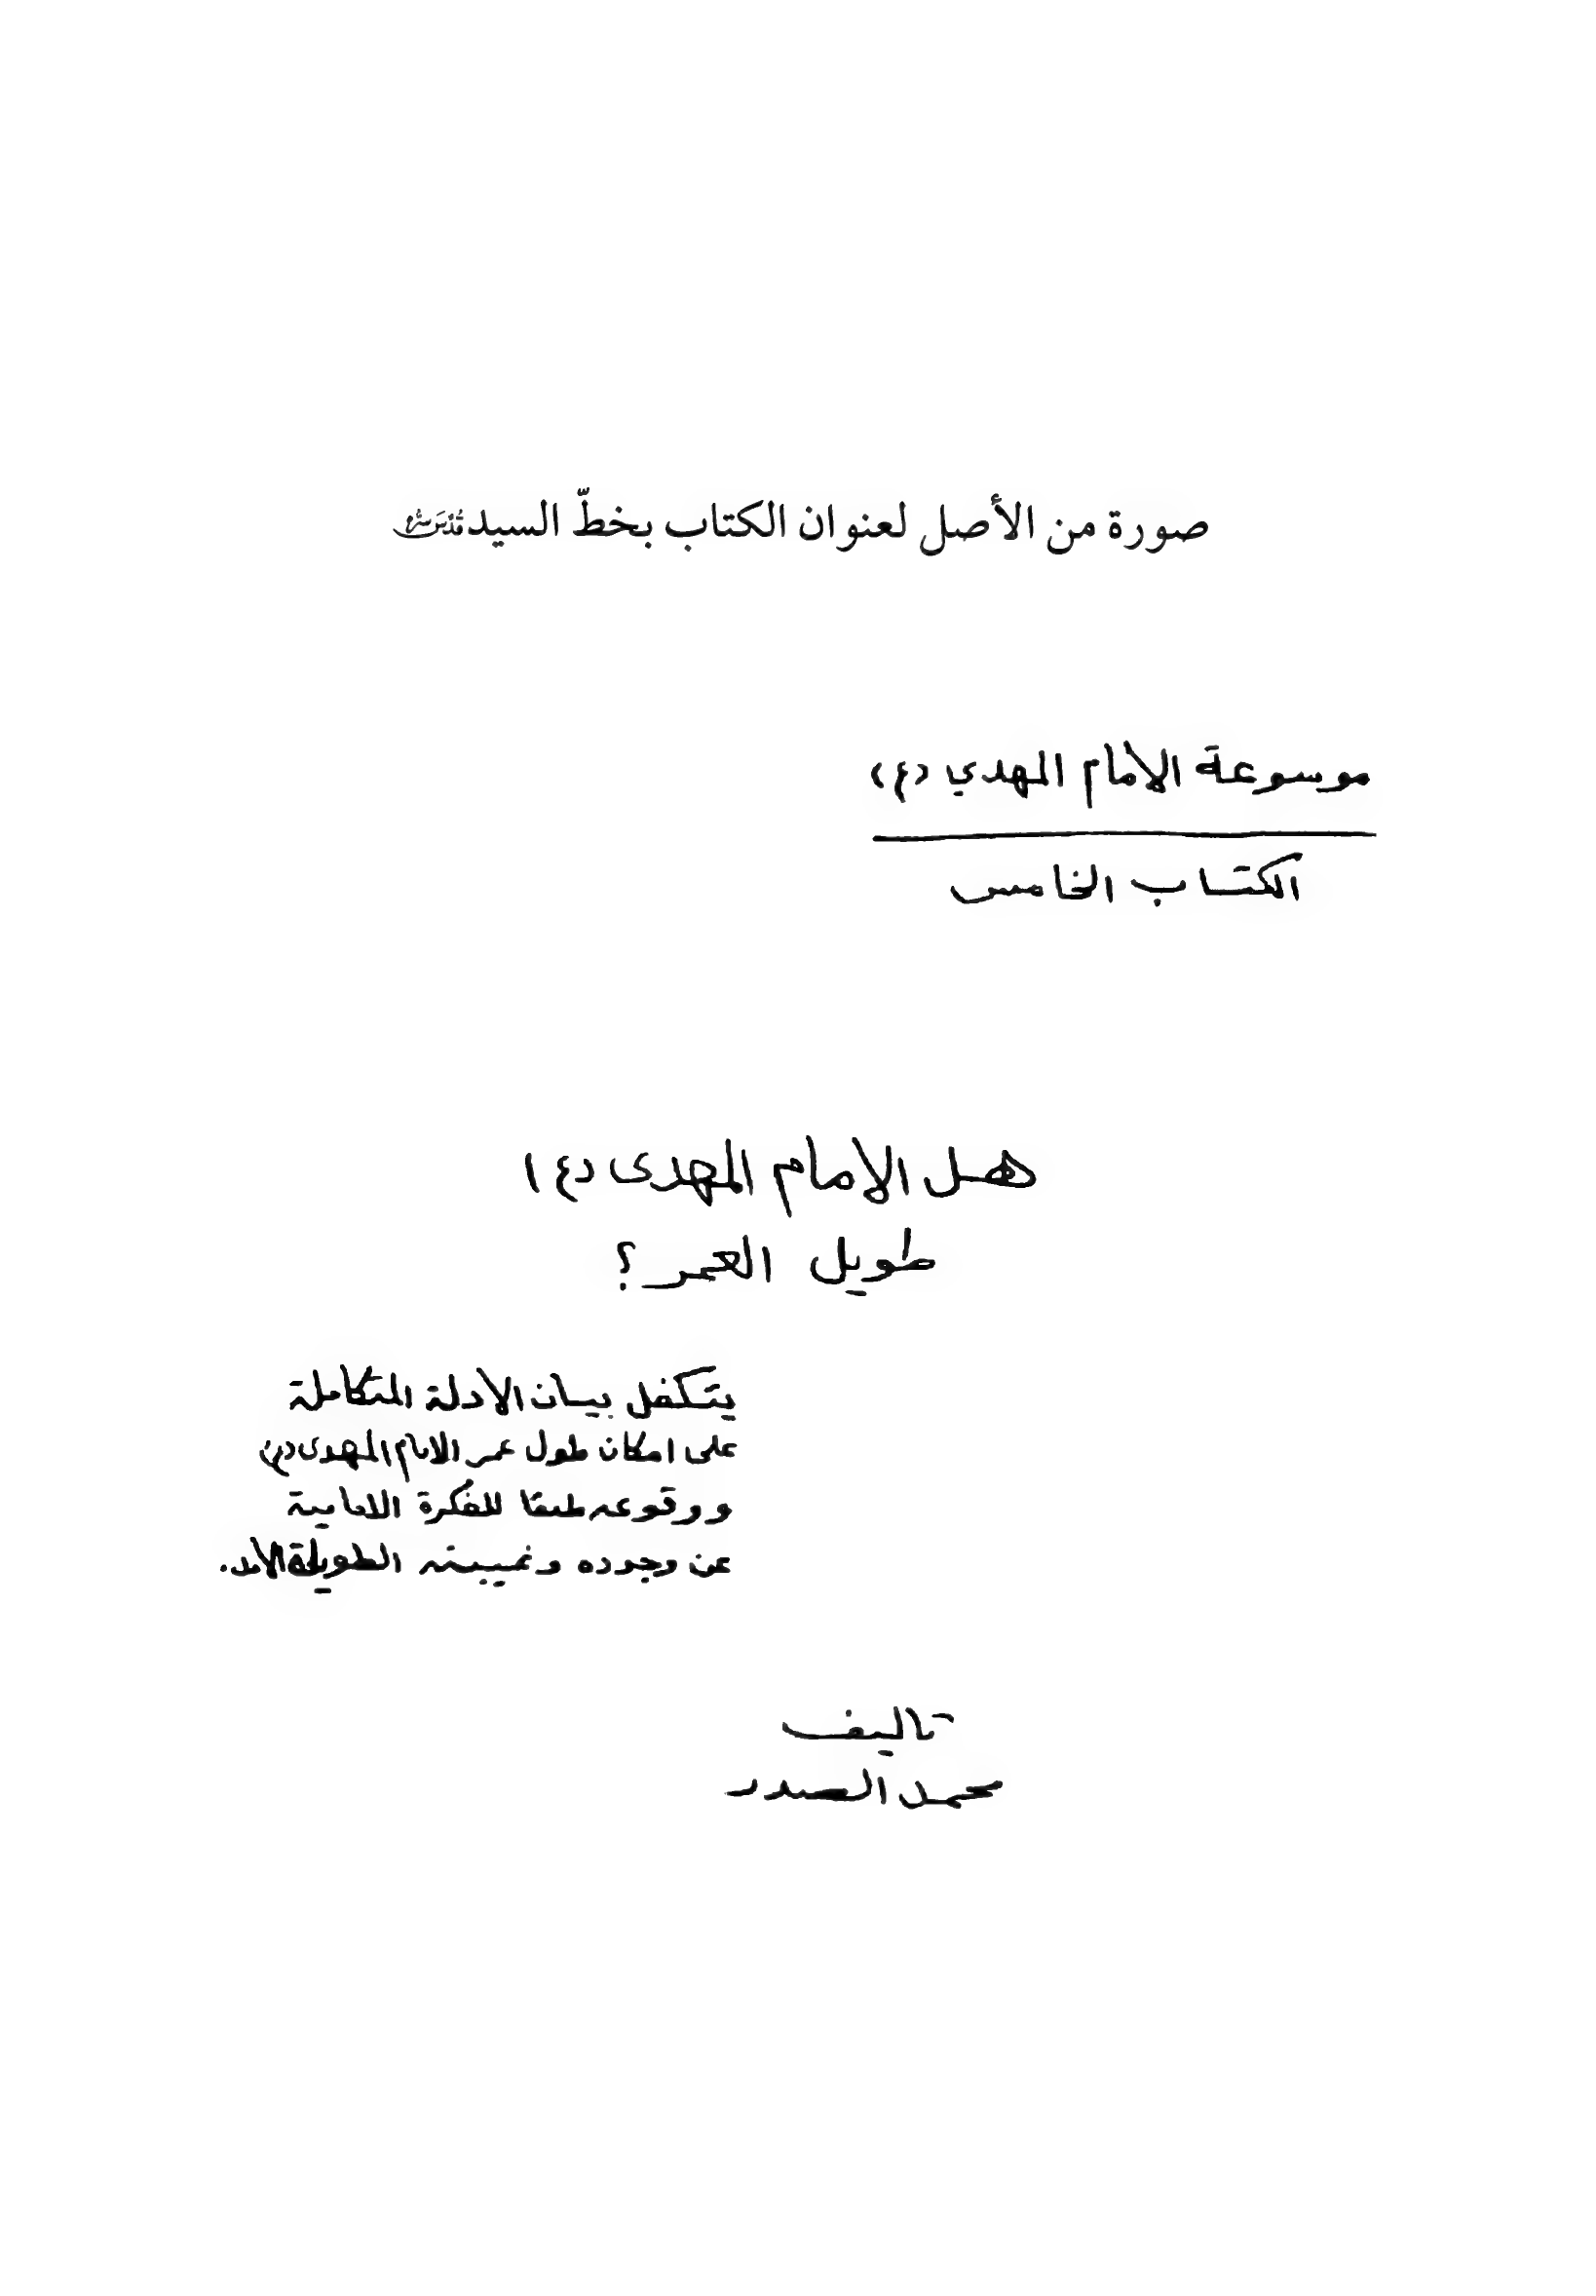 صورة من الأصل لعنوان الكتاب بخطّ السيد قدّس سرّه
موسوعة الامام المهدي (ع)
الكتاب الخامس
هل الامام المهدى (ع)
طويل العمر ؟
يتكفل بيان الادلة المتكاملة
على امكان طول عمر الامام المهدى (ع)
ووقوعه طبقا للفكرة الامامية
عن وجوده وغيبته الطويلة الامد.
تاليف
محمد الصدر